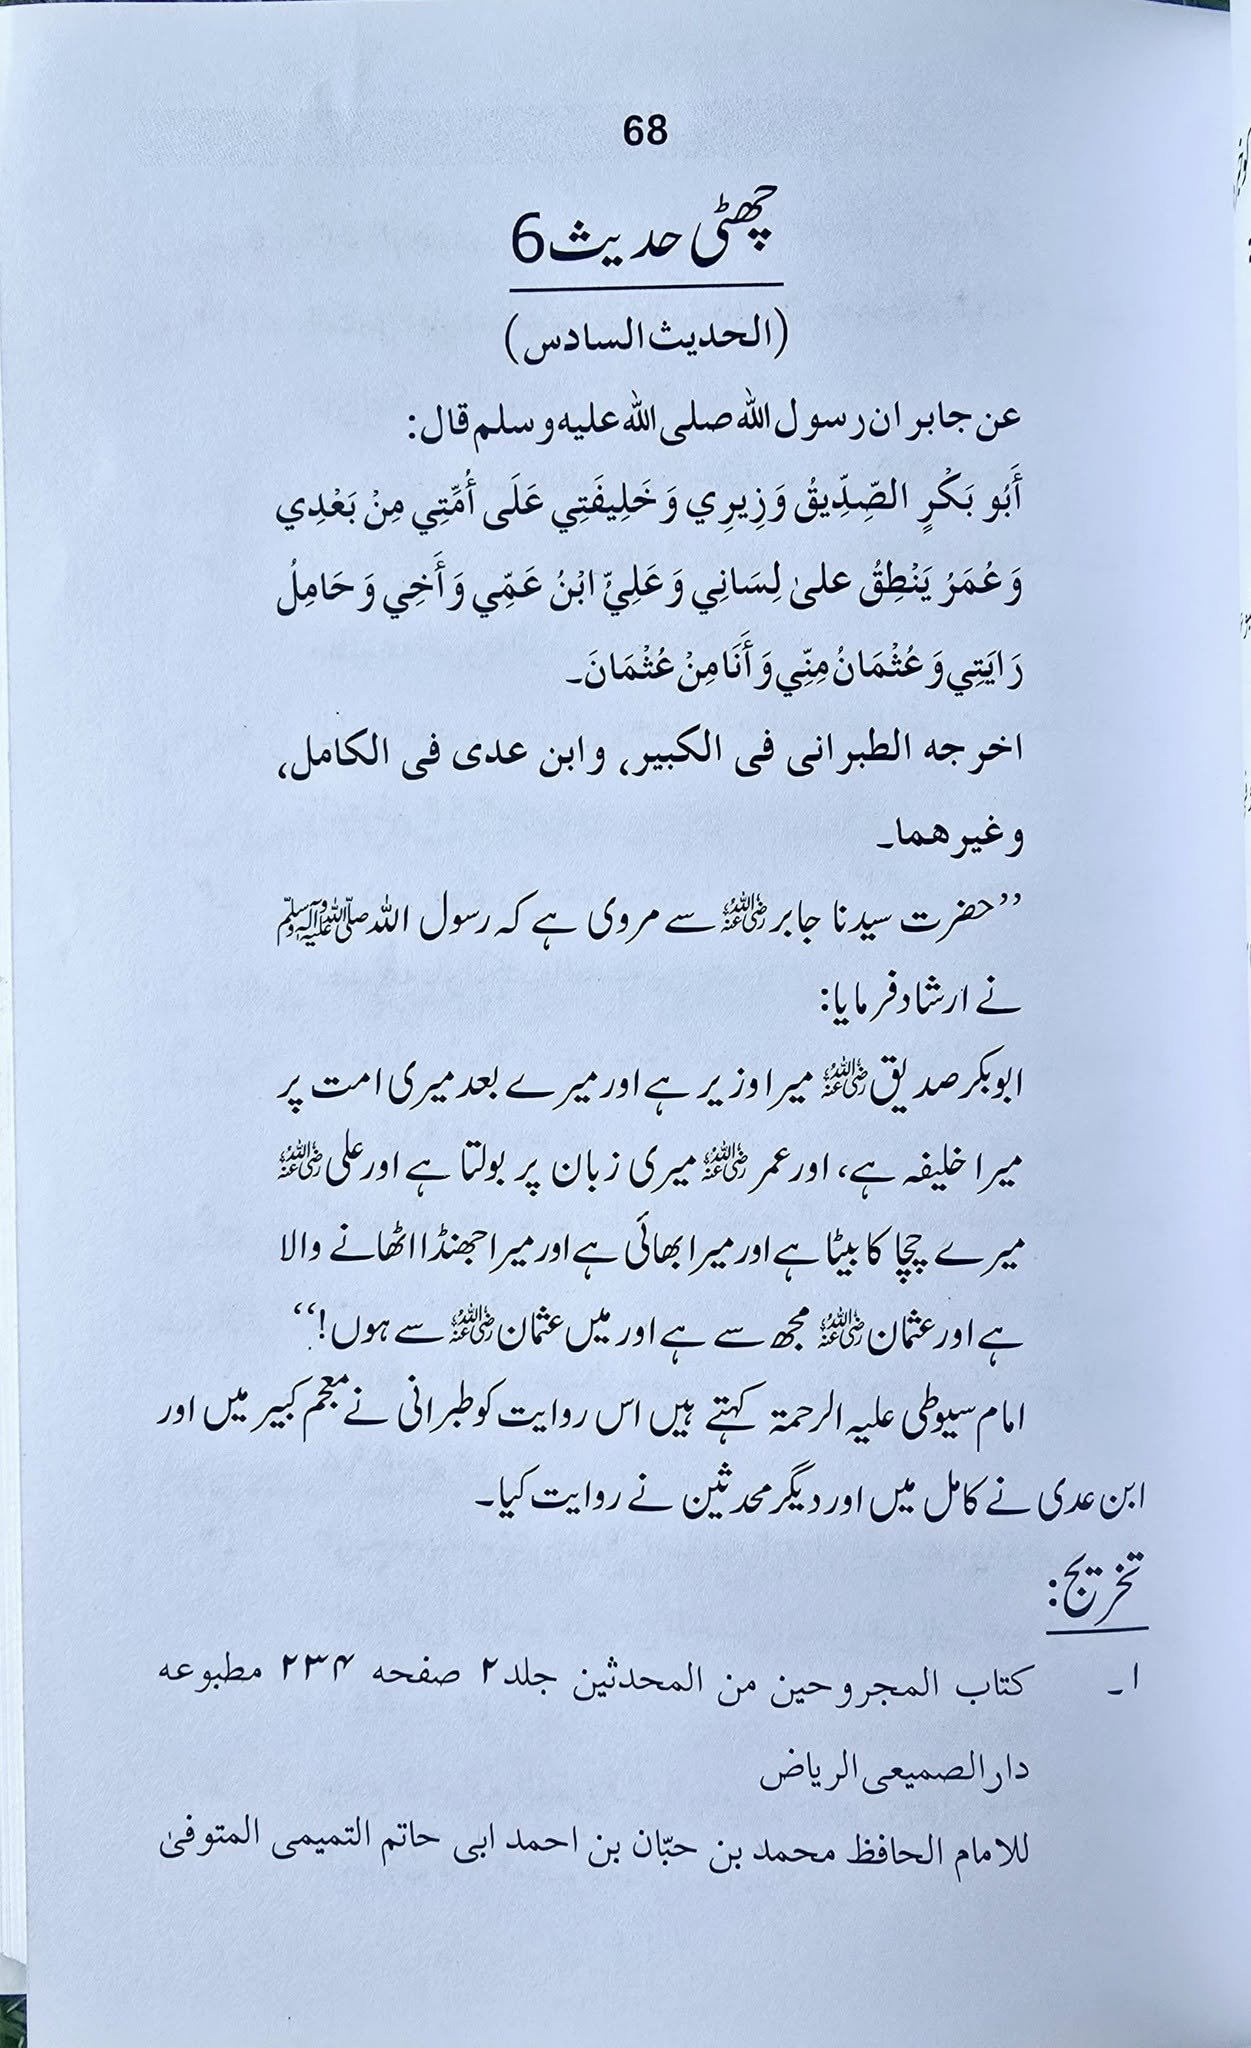 68
چھٹی حدیث 6
(الحدیث السادس)
عن جابر ان رسول الله صلی الله علیه وسلم قال:
أَبُو بَكْرٍ الصِّدِّيقُ وَزِيرِي وَخَلِيفَتِي عَلَى أُمَّتِي مِنْ بَعْدِي
وَعُمَرُ يَنْطِقُ علیٰ لِسَانِي وَعَلِيٌّ ابْنُ عَمِّي وَأَخِي وَحَامِلُ
رَايَتِي وَعُثْمَانُ مِنِّي وَأَنَا مِنْ عُثْمَانَ۔
اخرجه الطبرانی فی الکبیر، وابن عدی فی الکامل،
وغیرهما۔
’’حضرت سیدنا جابر رضی اللہ عنہ سے مروی ہے کہ رسول اللہ ﷺ
نے ارشاد فرمایا:
ابوبکر صدیق رضی اللہ عنہ میرا وزیر ہے اور میرے بعد میری امت پر
میرا خلیفہ ہے، اور عمر رضی اللہ عنہ میری زبان پر بولتا ہے اور علی رضی اللہ عنہ
میرے چچا کا بیٹا ہے اور میرا بھائی ہے اور میرا جھنڈا اٹھانے والا
ہے اور عثمان رضی اللہ عنہ مجھ سے ہے اور میں عثمان رضی اللہ عنہ سے ہوں!‘‘
امام سیوطی علیہ الرحمۃ کہتے ہیں اس روایت کو طبرانی نے معجم کبیر میں اور
ابن عدی نے کامل میں اور دیگر محدثین نے روایت کیا۔
تخریج:
۱۔ کتاب المجروحین من المحدثین جلد ۲ صفحه ۲۳۴ مطبوعه
دار الصمیعی الریاض
للامام الحافظ محمد بن حبّان بن احمد ابی حاتم التمیمی المتوفیٰ